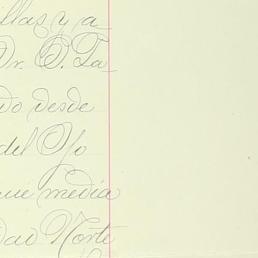 llas y a
Dr. O. Ta
do desde
del Yo
que media
dad Norte